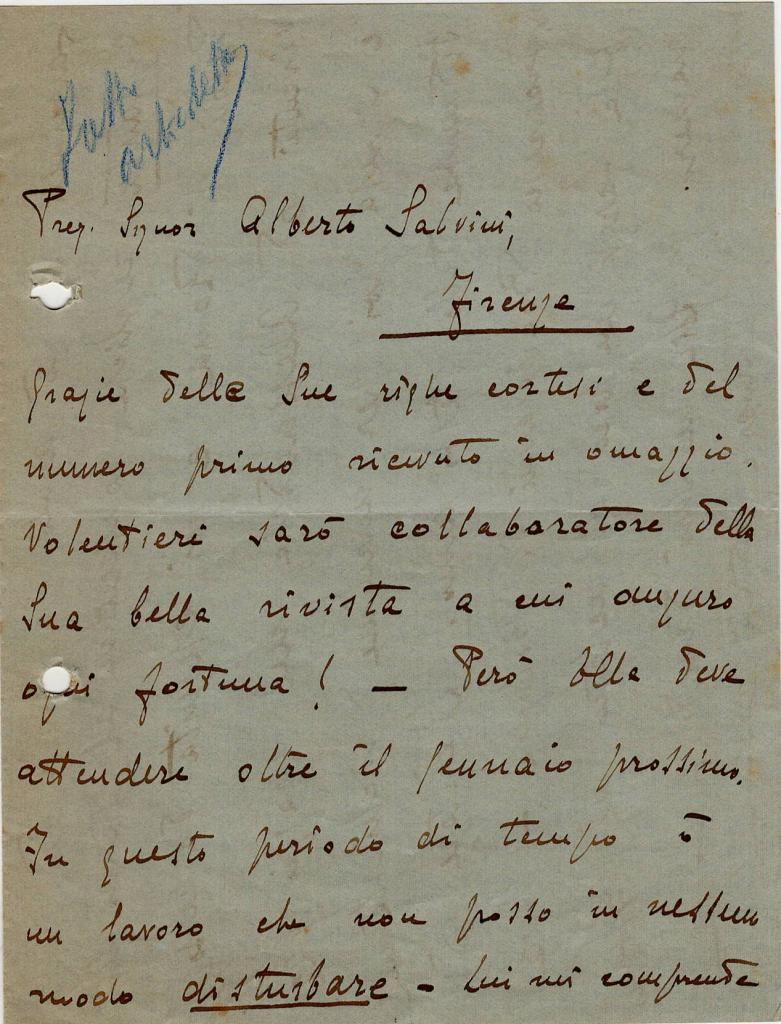 Fatta
Preg. Signor Alberto Salvini,
Firenze
Grazie delle Sue righe cortesi e del
numero primo ricevuto in omaggio.
Volentieri sarò collaboratore della
Sua bella rivista a cui auguro
ogni fortuna! — Però Ella deve
attendere oltre il gennaio prossimo.
In questo periodo di tempo ò
un lavoro che non posso in nessun
modo disturbare - Lui mi comprende